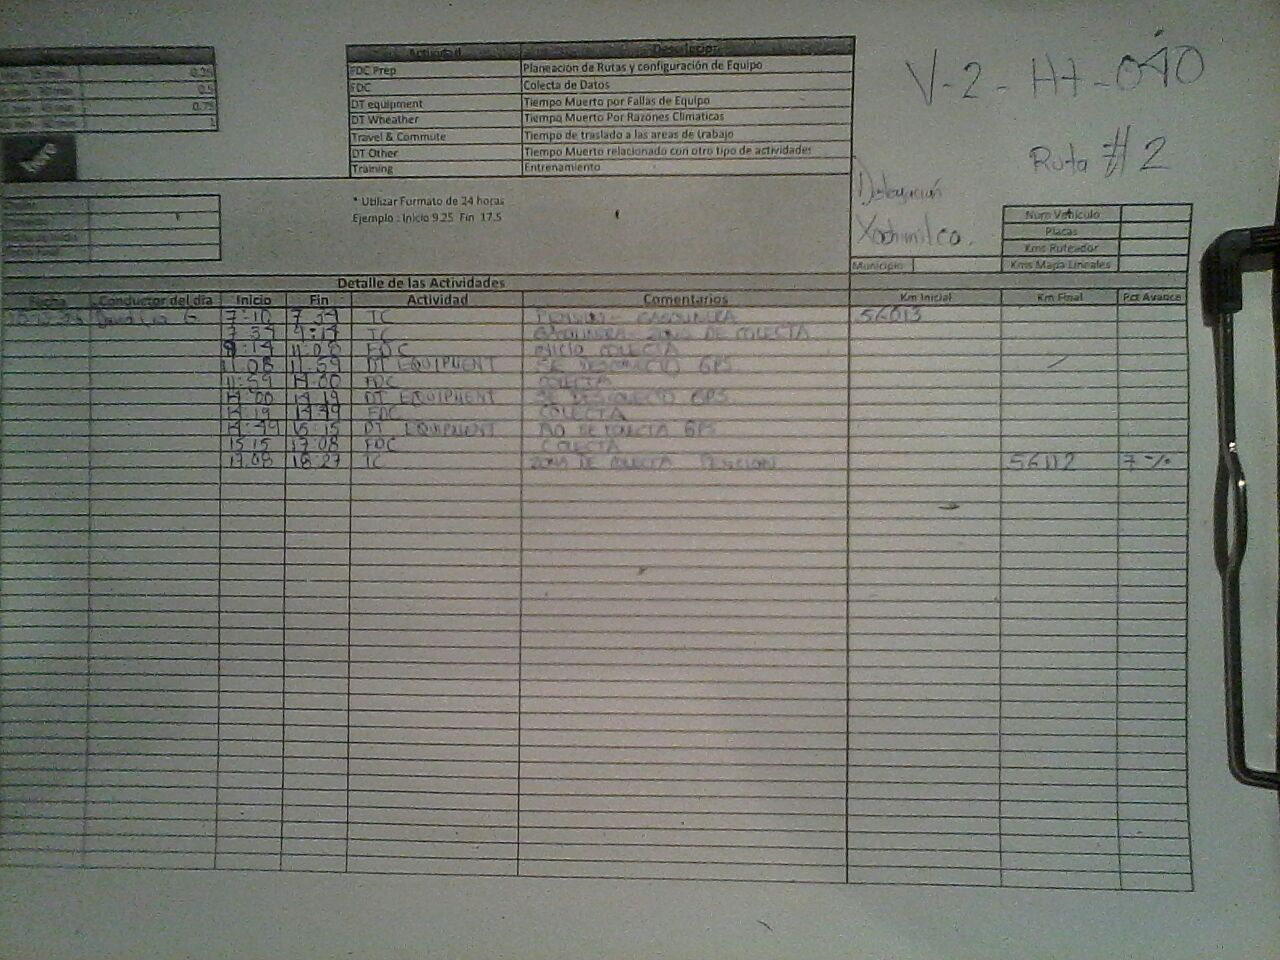 0.25
0.5
0.75
1
Actividad Descripcion
FDC Prep Planeacion de Rutas y configuración de Equipo
FDC Colecta de Datos
DT equipment Tiempo Muerto por Fallas de Equipo
DT Wheather Tiempo Muerto Por Razones Climaticas
Travel & Commute Tiempo de traslado a las areas de trabajo
DT Other Tiempo Muerto relacionado con otro tipo de actividades
Training Entrenamiento
V-2-H7-040
Ruta #2
Delegación
Xochimilco.
* Utilizar Formato de 24 horas
Ejemplo : Inicio 9.25 Fin 17.5
Num Vehículo
Placas
Kms Ruteador
Municipio Kms Mapa Lineales
Detalle de las Actividades
Fecha Conductor del día Inicio Fin Actividad Comentarios Km Inicial Km Final Pct Avance
7:10 7:34 TC PENSION - GASOLINERA 56013
7:34 9:14 TC GASOLINERA - ZONA DE COLECTA
9:14 11:08 FDC INICIO COLECTA
11:08 11:59 DT EQUIPMENT SE DESCONECTO GPS
11:59 14:00 FDC COLECTA
14:00 14:19 DT EQUIPMENT SE DESCONECTO GPS
14:19 14:49 FDC COLECTA
14:49 15:15 DT EQUIPMENT NO SE CONECTA GPS
15:15 17:08 FDC COLECTA
17:08 18:27 TC ZONA DE COLECTA PENSION 56112 7%